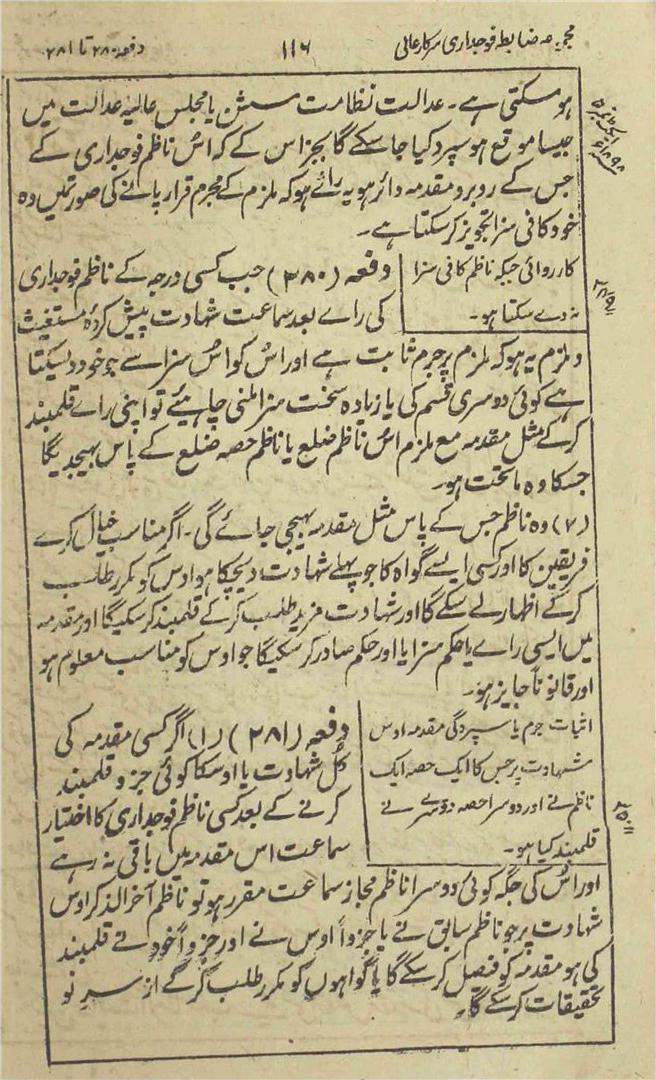 مجموعہ ضابطہ فوجداری سرکار عالی
۱۱۶
دفعہ ۲۸۰ تا ۲۸۱
ہو سکتی ہے۔ عدالت نظامت سشن یا مجلس عالیہ عدالت میں
جیسا موقع ہو سپرد کیا جا سکے گا بجز اس کے کہ اُس ناظم فوجداری کے
جس کے روبرو مقدمہ دائر ہو یہ رائے ہو کہ ملزم کے مجرم قرار پانے کی صورتمیں وہ
خود کافی سزا تجویز کر سکتا ہے۔
کارروائی جبکہ ناظم کافی سزا
نہ دے سکتا ہو۔
دفعہ (۲۸۰) جب کسی درجہ کے ناظم فوجداری
کی رائے بعد سماعت شہادت پیش کردہٴ مستغیث
و ملزم یہ ہو کہ ملزم پر جرم ثابت ہے اور اس کو اُس سزا سے جو خود دیسکتا
ہے کوئی دوسری قسم کی یا زیادہ سخت سزا ملنی چاہیئے تو اپنی رائے قلمبند
کر کے مثل مقدمہ مع ملزم اُس ناظم ضلع یا ناظم حصہ ضلع کے پاس بھیجدیگا
جسکا وہ ماتحت ہو۔
(۲) وہ ناظم جس کے پاس مثل مقدمہ بھیجی جائے گی۔ اگر مناسب خیال کرے
فریقین کا اور کسی ایسے گواہ کا جو پہلے شہادت دیچکا ہو اوس کو مکرر طلب
کر کے اظہار لے سکے گا اور شہادت مزید طلب کر کے قلمبند کر سکیگا اور مقدمہ
میں ایسی رائے یا حکم سزا یا اور حکم صادر کر سکیگا جو اوس کو مناسب معلوم ہو
اور قانوناً جایز ہو۔
اثبات جرم یا سپردگی مقدمہ اوس
شہادت پر جس کا ایک حصہ ایک
ناظم نے اور دوسرا حصہ دوسرے نے
قلمبند کیا ہو۔
دفعہ (۲۸۱) (۱) اگر کسی مقدمہ کی
کُل شہادت یا اوسکا کوئی جزو قلمبند
کرنے کے بعد کسی ناظم فوجداری کا اختیار
سماعت اس مقدمہ میں باقی نہ رہے
اور اُس کی جگہ کوئی دوسرا ناظم مجاز سماعت مقرر ہو تو ناظم آخر الذکر اوس
شہادت پر جو ناظم سابق نے یا جزواً اوس نے اور جزواً خود نے قلمبند
کی ہو مقدمہ کو فیصل کر سکے گا یا گواہوں کو مکرر طلب کر کے از سر نو
تحقیقات کر سکے گا۔